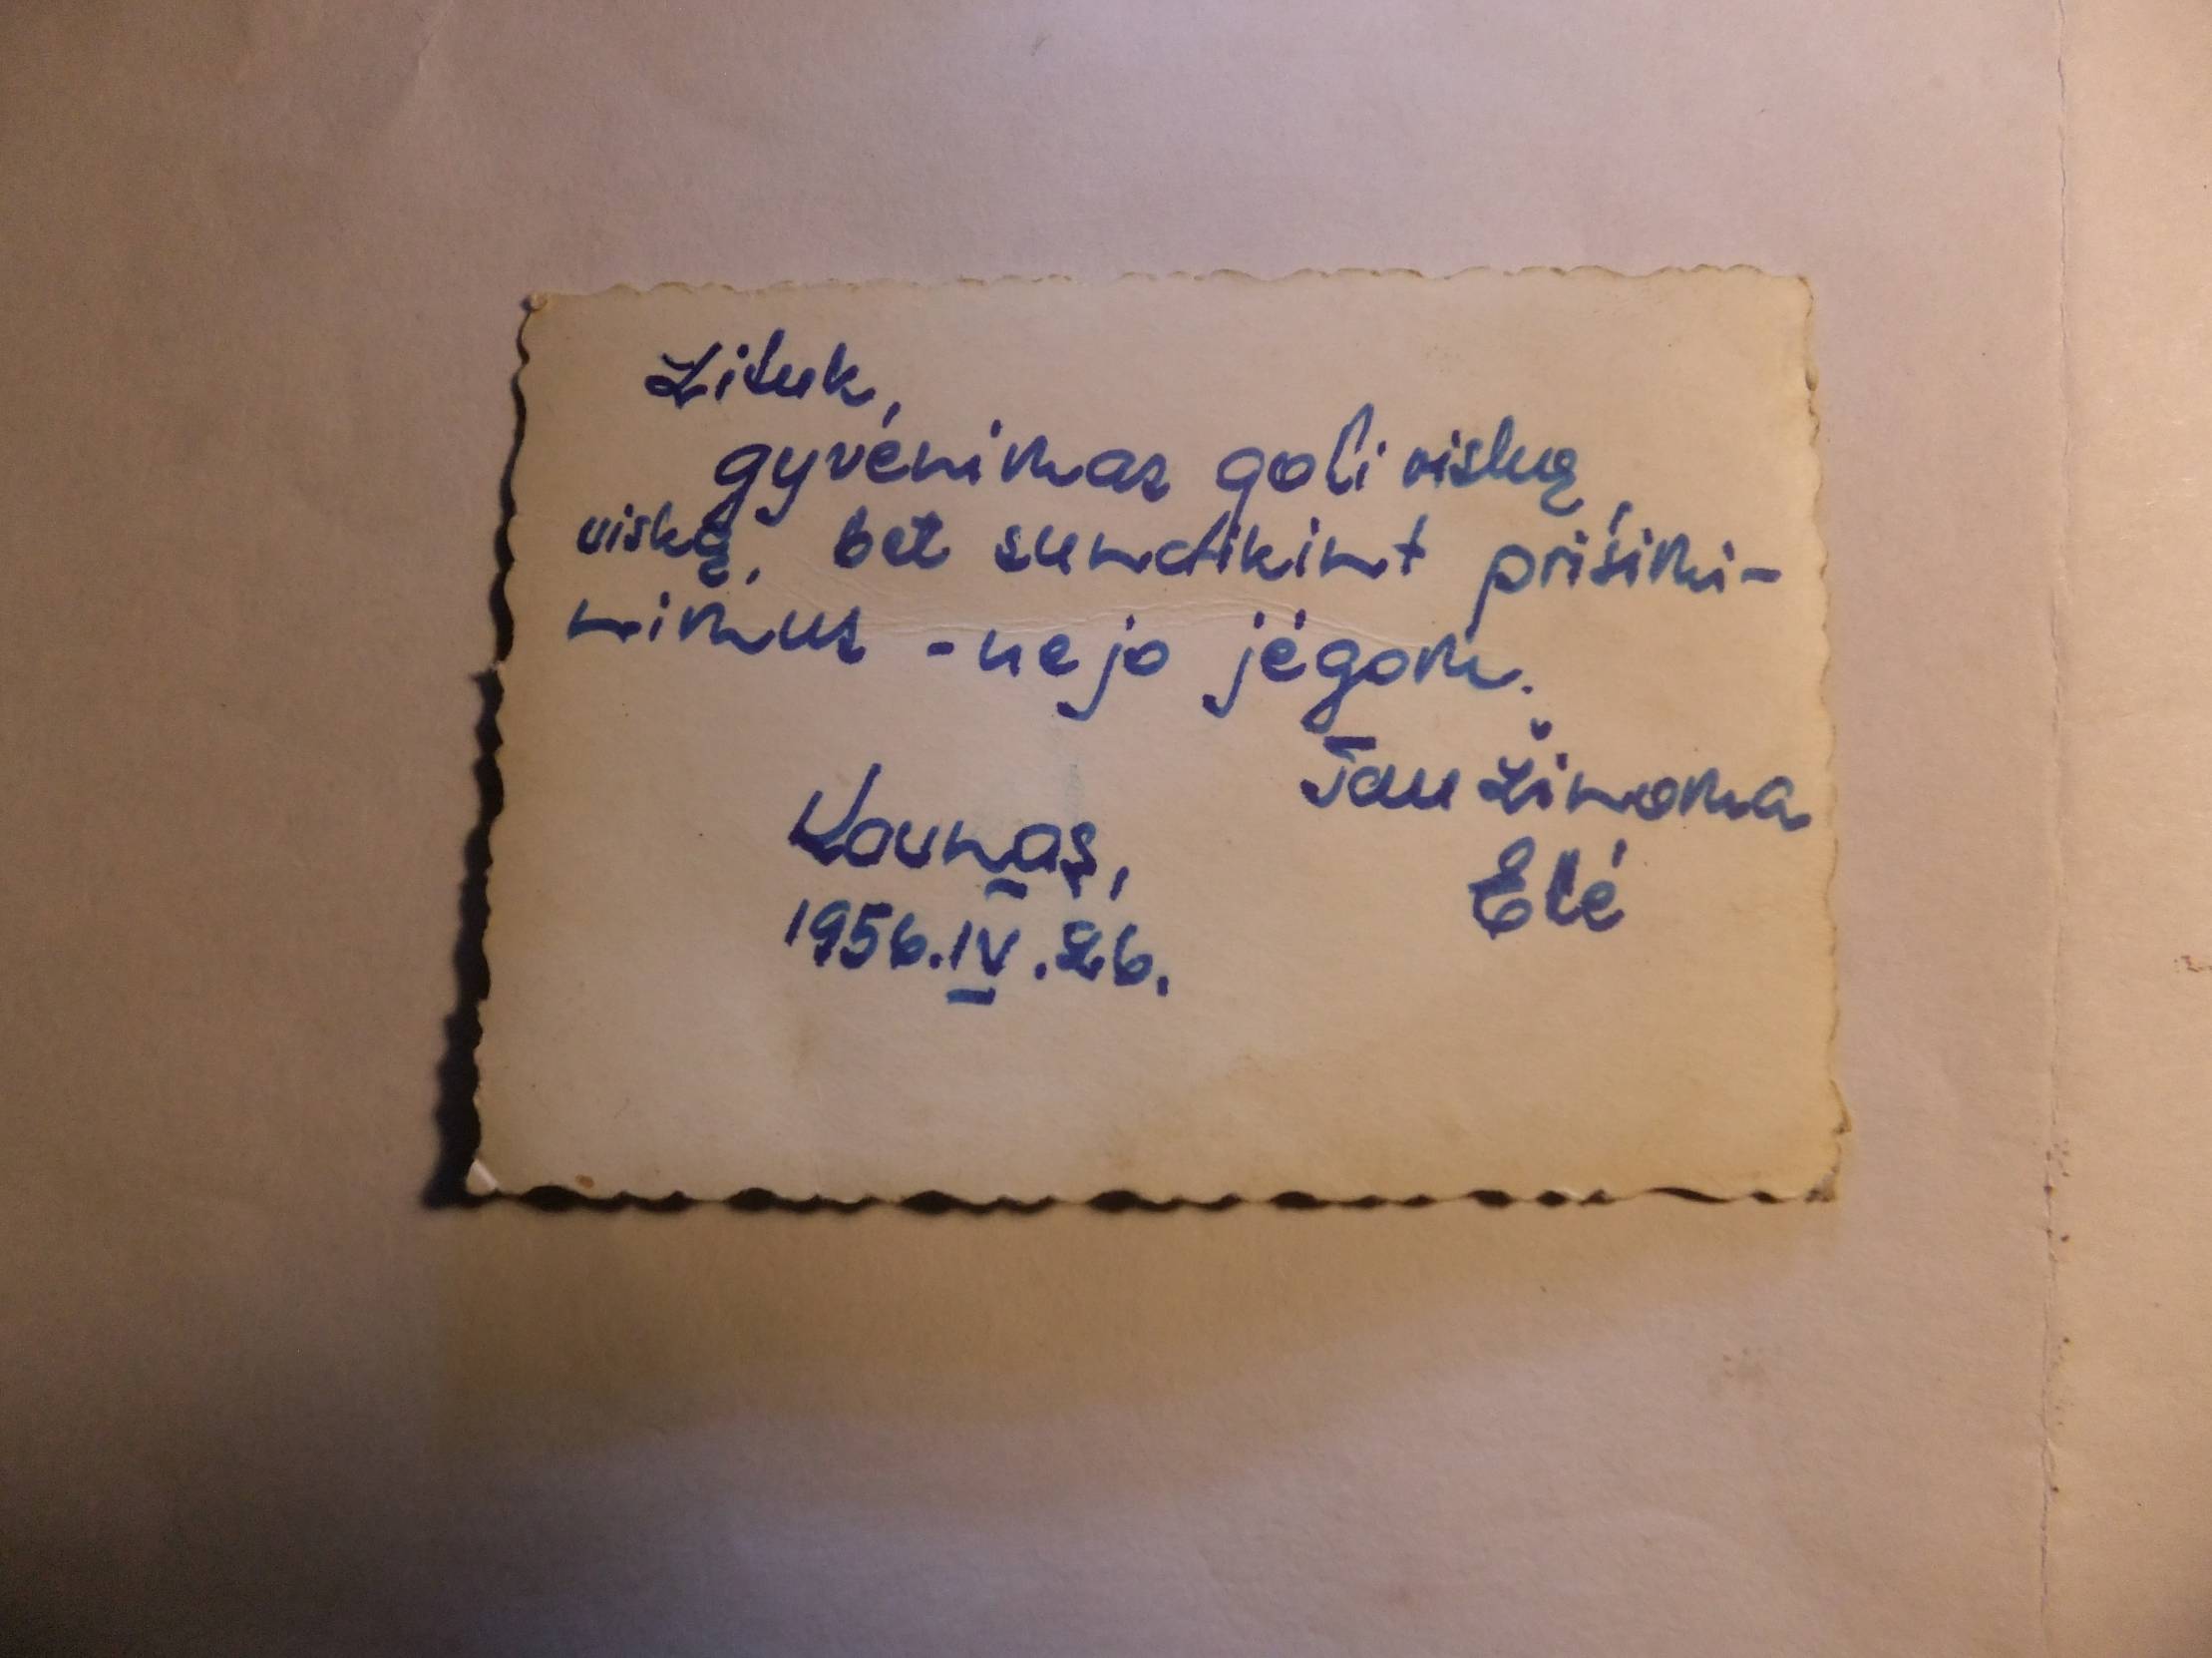 Zituk,
gyvenimas gali viską,
viską, bet sunaikint prisimi-
nimus - ne jo jėgom.
Tau žinoma
Elė
Kaunas,
1956.IV.26.